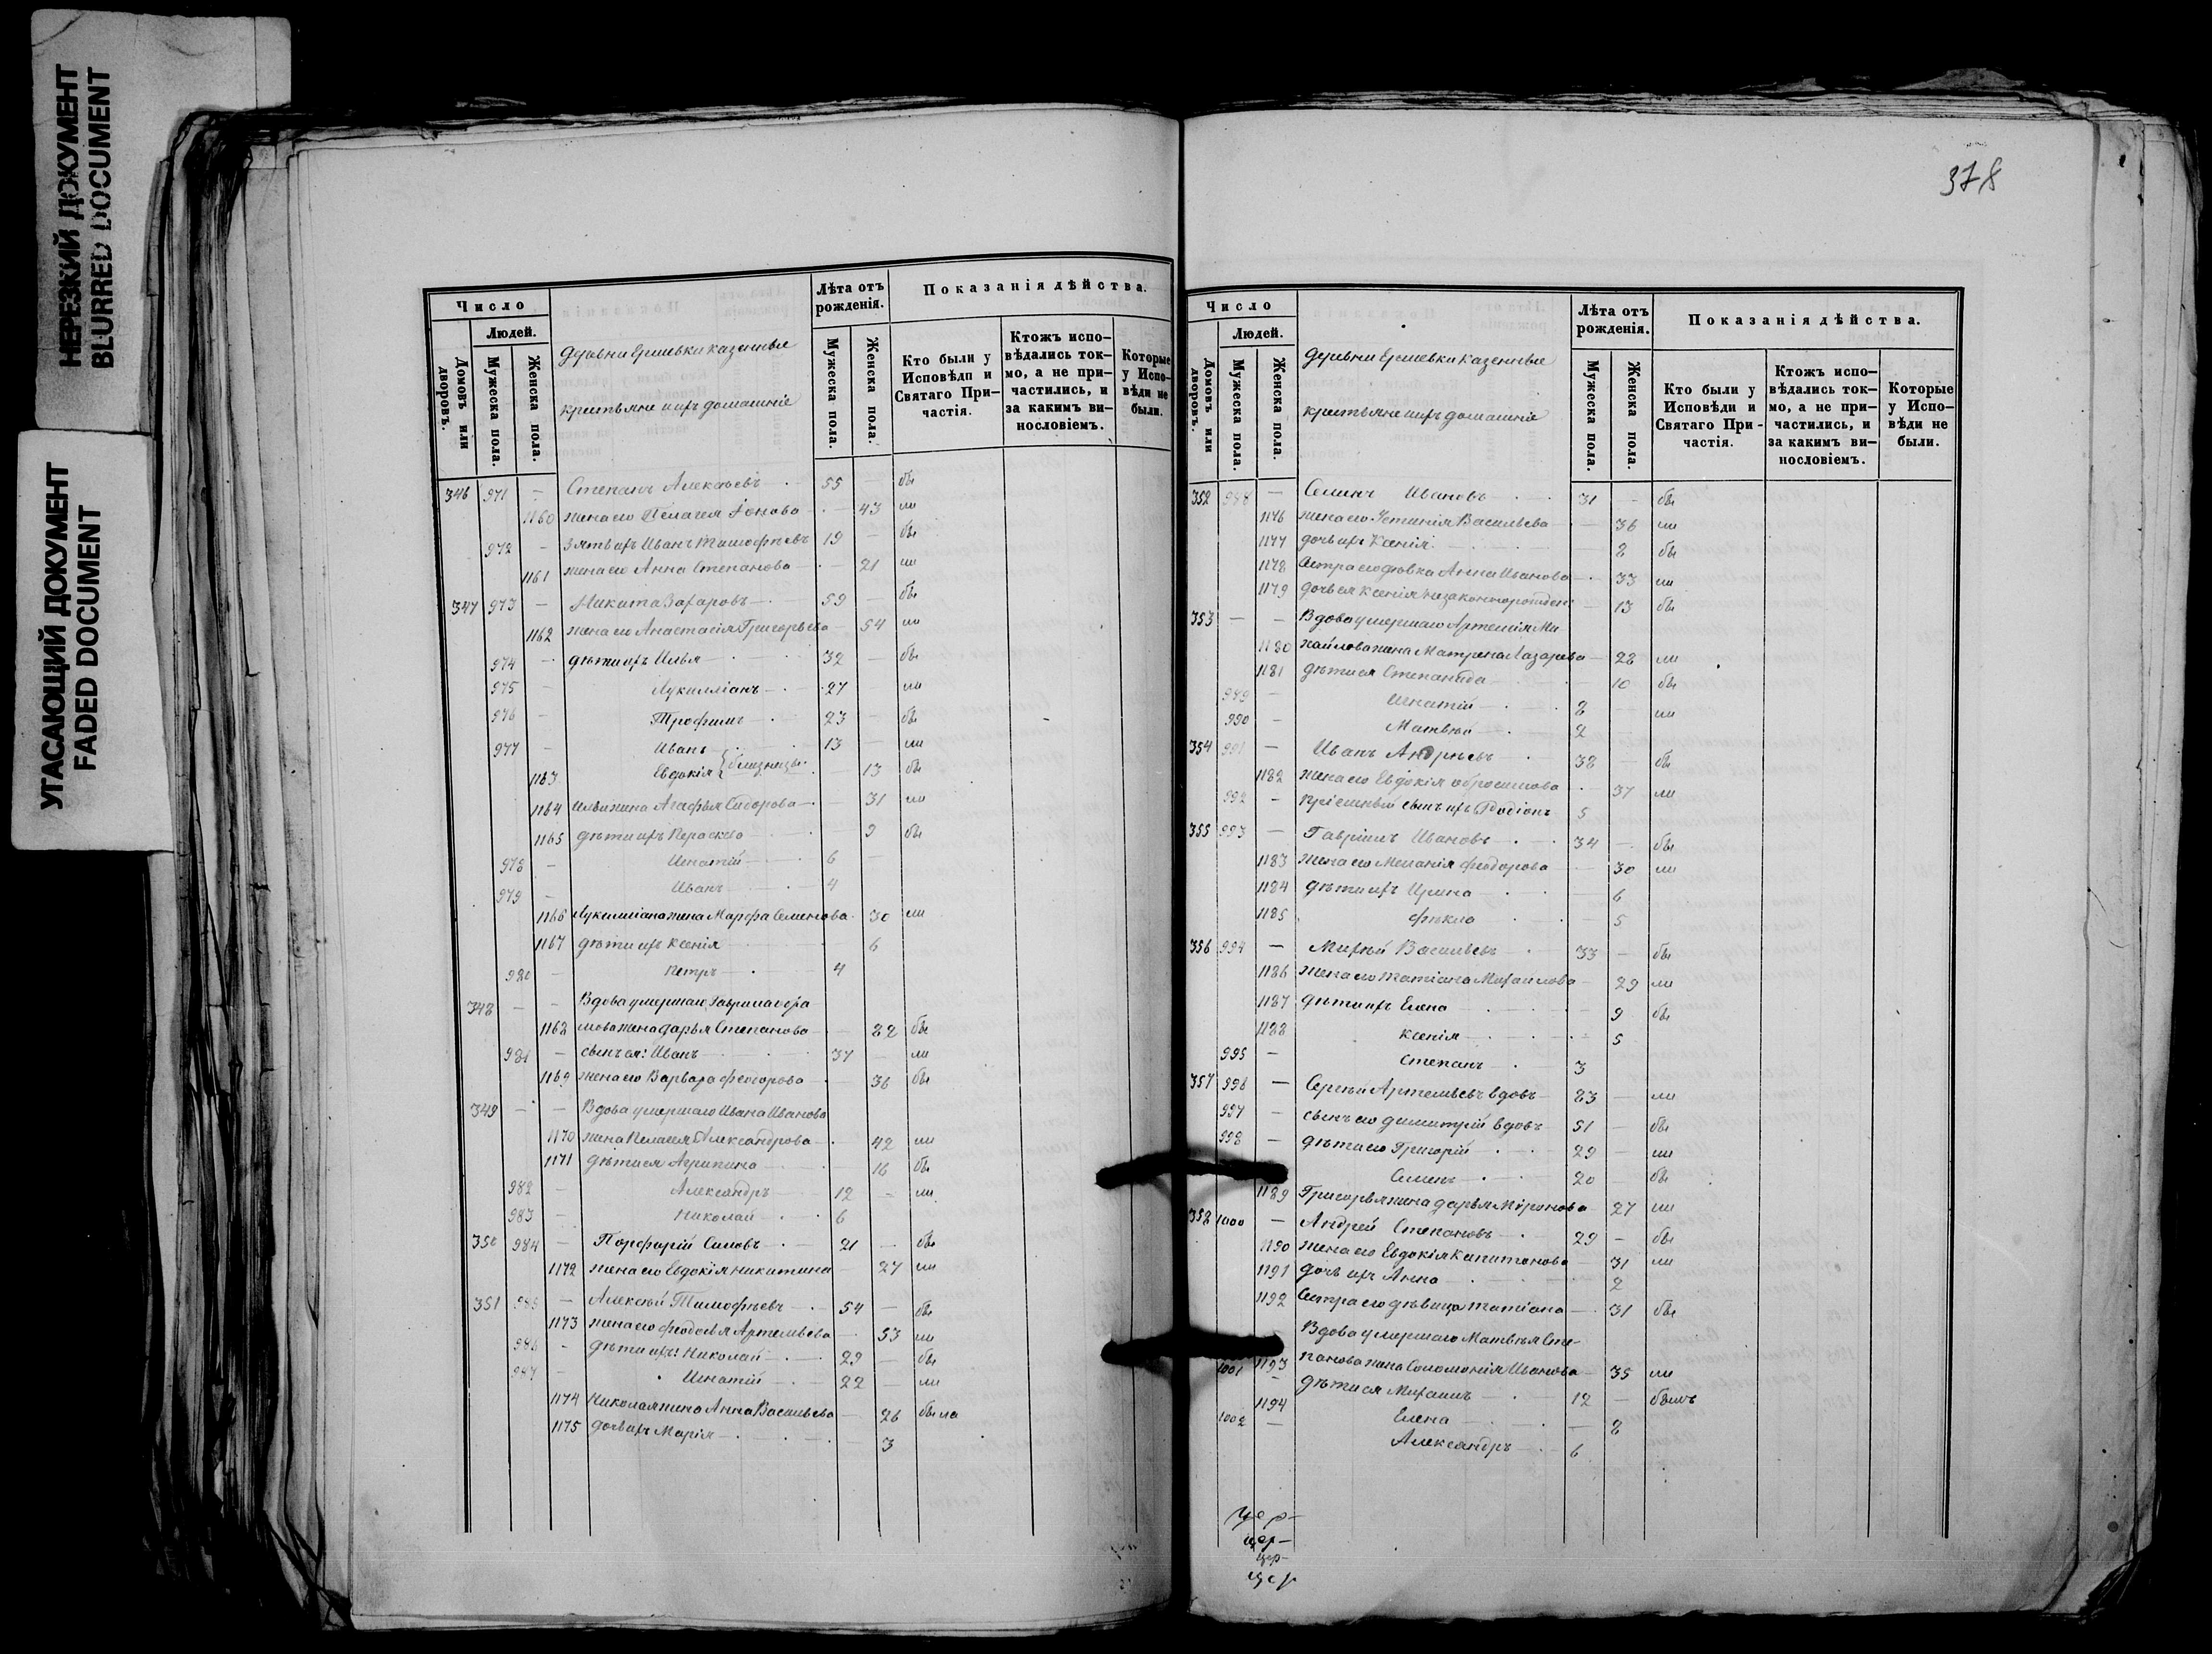 НЕРЕЗКИЙ ДОКУМЕНТ
BLURRED DOCUMENT
УГАСАЮЩИЙ ДОКУМЕНТ
FADED DOCUMENT
Число
Людей.
Домовъ или дворовъ.
Мужеска пола.
Женска пола.
деревни казенные
крестьяне ихъ домашніе
Лѣта отъ рожденія.
Мужеска пола.
Женска пола.
Показанія дѣйства.
Кто были у Исповѣди и Святаго Причастія.
Ктожъ исповѣдались токмо, а не причастились, и за какимъ винословіемъ.
Которые у Исповѣди не были.
346 971 — Степанъ Алексѣевъ 55 — бы
1160 жена его Пелагея 43 ли
972 — Зять ихъ Иванъ Тимофѣевъ 19 — бы
1161 жена его Анна Степанова — 21 ли
347 973 — Никита Захаровъ — 59 — бы
1162 жена его Анастасія Григорьева — 54 ли
974 — дѣти ихъ Илья — 32 — бы
975 — Лукилліанъ — 27 — ли
976 — Трофимъ — 23 — бы
977 — Иванъ 13 — ли
1163 Евдокія близнецы — 13 бы
1164 Ильи жена Агафья Сидорова — 31 ли
1165 дѣти ихъ Параскева 9 бы
978 — Игнатій — 6 —
979 — Иванъ 4
1166 Лукилліана жена Марфа Семенова 30 ли
1167 дѣти ихъ Ксенія — 6
980 — Петръ — 4
348 — — Вдова умершаго Гаврила
1168 жена дарья Степанова — 82 бы
981 — сынъ ея: Иванъ 37 — ли
1169 жена его Варвара феодорова — 36 бы
349 — — Вдова умершаго Ивана Иванова
1170 жена Пелагея Александрова — 42 ли
1171 дѣти ея Агрипина 16 бы
982 — Александръ 12 — ли
983 — Николай — 6
350 984 — Порфирій Силовъ — 21 — бы
1172 жена его Евдокія никитина — 27 ли
351 985 — Алексѣй Тимофѣевъ — 54 — бы
1173 жена его феодосья Артемьева — 53 ли
986 — дѣти ихъ: Николай — 29 — бы
987 — Игнатій — 22 — ли
1174 Николая жена Анна Васильева — 26 была
1175 дочь ихъ Марія — 3
378
Число
Людей.
Домовъ или дворовъ.
Мужеска пола.
Женска пола.
деревни казенные
крестьяне ихъ домашніе
Лѣта отъ рожденія.
Мужеска пола.
Женска пола.
Показанія дѣйства.
Кто были у Исповѣди и Святаго Причастія.
Ктожъ исповѣдались токмо, а не причастились, и за какимъ винословіемъ.
Которые у Исповѣди не были.
352 988 — Ивановъ 31 — бы
1176 жена его Устинія Васильева — 36 ли
1177 дочь ихъ Ксенія 8 бы
1178 Сестра его дѣвка Анна Иванова — 33 ли
1179 дочь ея Ксенія незаконнорожден — 13 бы
353 — — Вдова умершаго Артемія Ми
1180 хайлова жена Матрена Лазарева — 28 ли
1181 дѣти ея Степанида 10 бы
989 — Игнатій 8 ли
990 — Матвѣй 2
354 991 — Иванъ Андреевъ 38 — бы
1182 жена его Евдокія — 37 ли
992 — сынъ ихъ Родіонъ 5
355 993 — Гавріилъ Ивановъ 34 — бы
1183 жена его Меланія феодорова — 30 ли
1184 дѣти ихъ Ирина — 6
1185 фекла — 5
356 994 — Васильевъ 33 — бы
1186 жена его татіана Михаилова — 29 ли
1187 дѣти ихъ Елена — 9 бы
1188 Ксенія 5
995 — Степанъ — 3
357 996 — Сергѣй Артемьевъ вдовъ — 83 — ли
997 — сынъ его димитрій вдовъ — 51 — бы
998 — дѣти его Григорій 29 — ли
Семенъ 20 — бы
1189 Григорья жена дарья Миронова — 27 ли
358 1000 — Андрей Степановъ — 29 — бы
1190 жена его Евдокія Капитонова — 31 ли
1191 дочь ихъ Анна 2
1192 Сестра его дѣвица татіана — 31 бы
Вдова умершаго Матвѣя Сте-
1193 панова жена Соломонія Иванова — 35 ли
1001 — дѣти ея Михаилъ 12 — былъ
1194 Елена — 8
1002 — Александръ — 6
цер-
цер-
цер-
цер